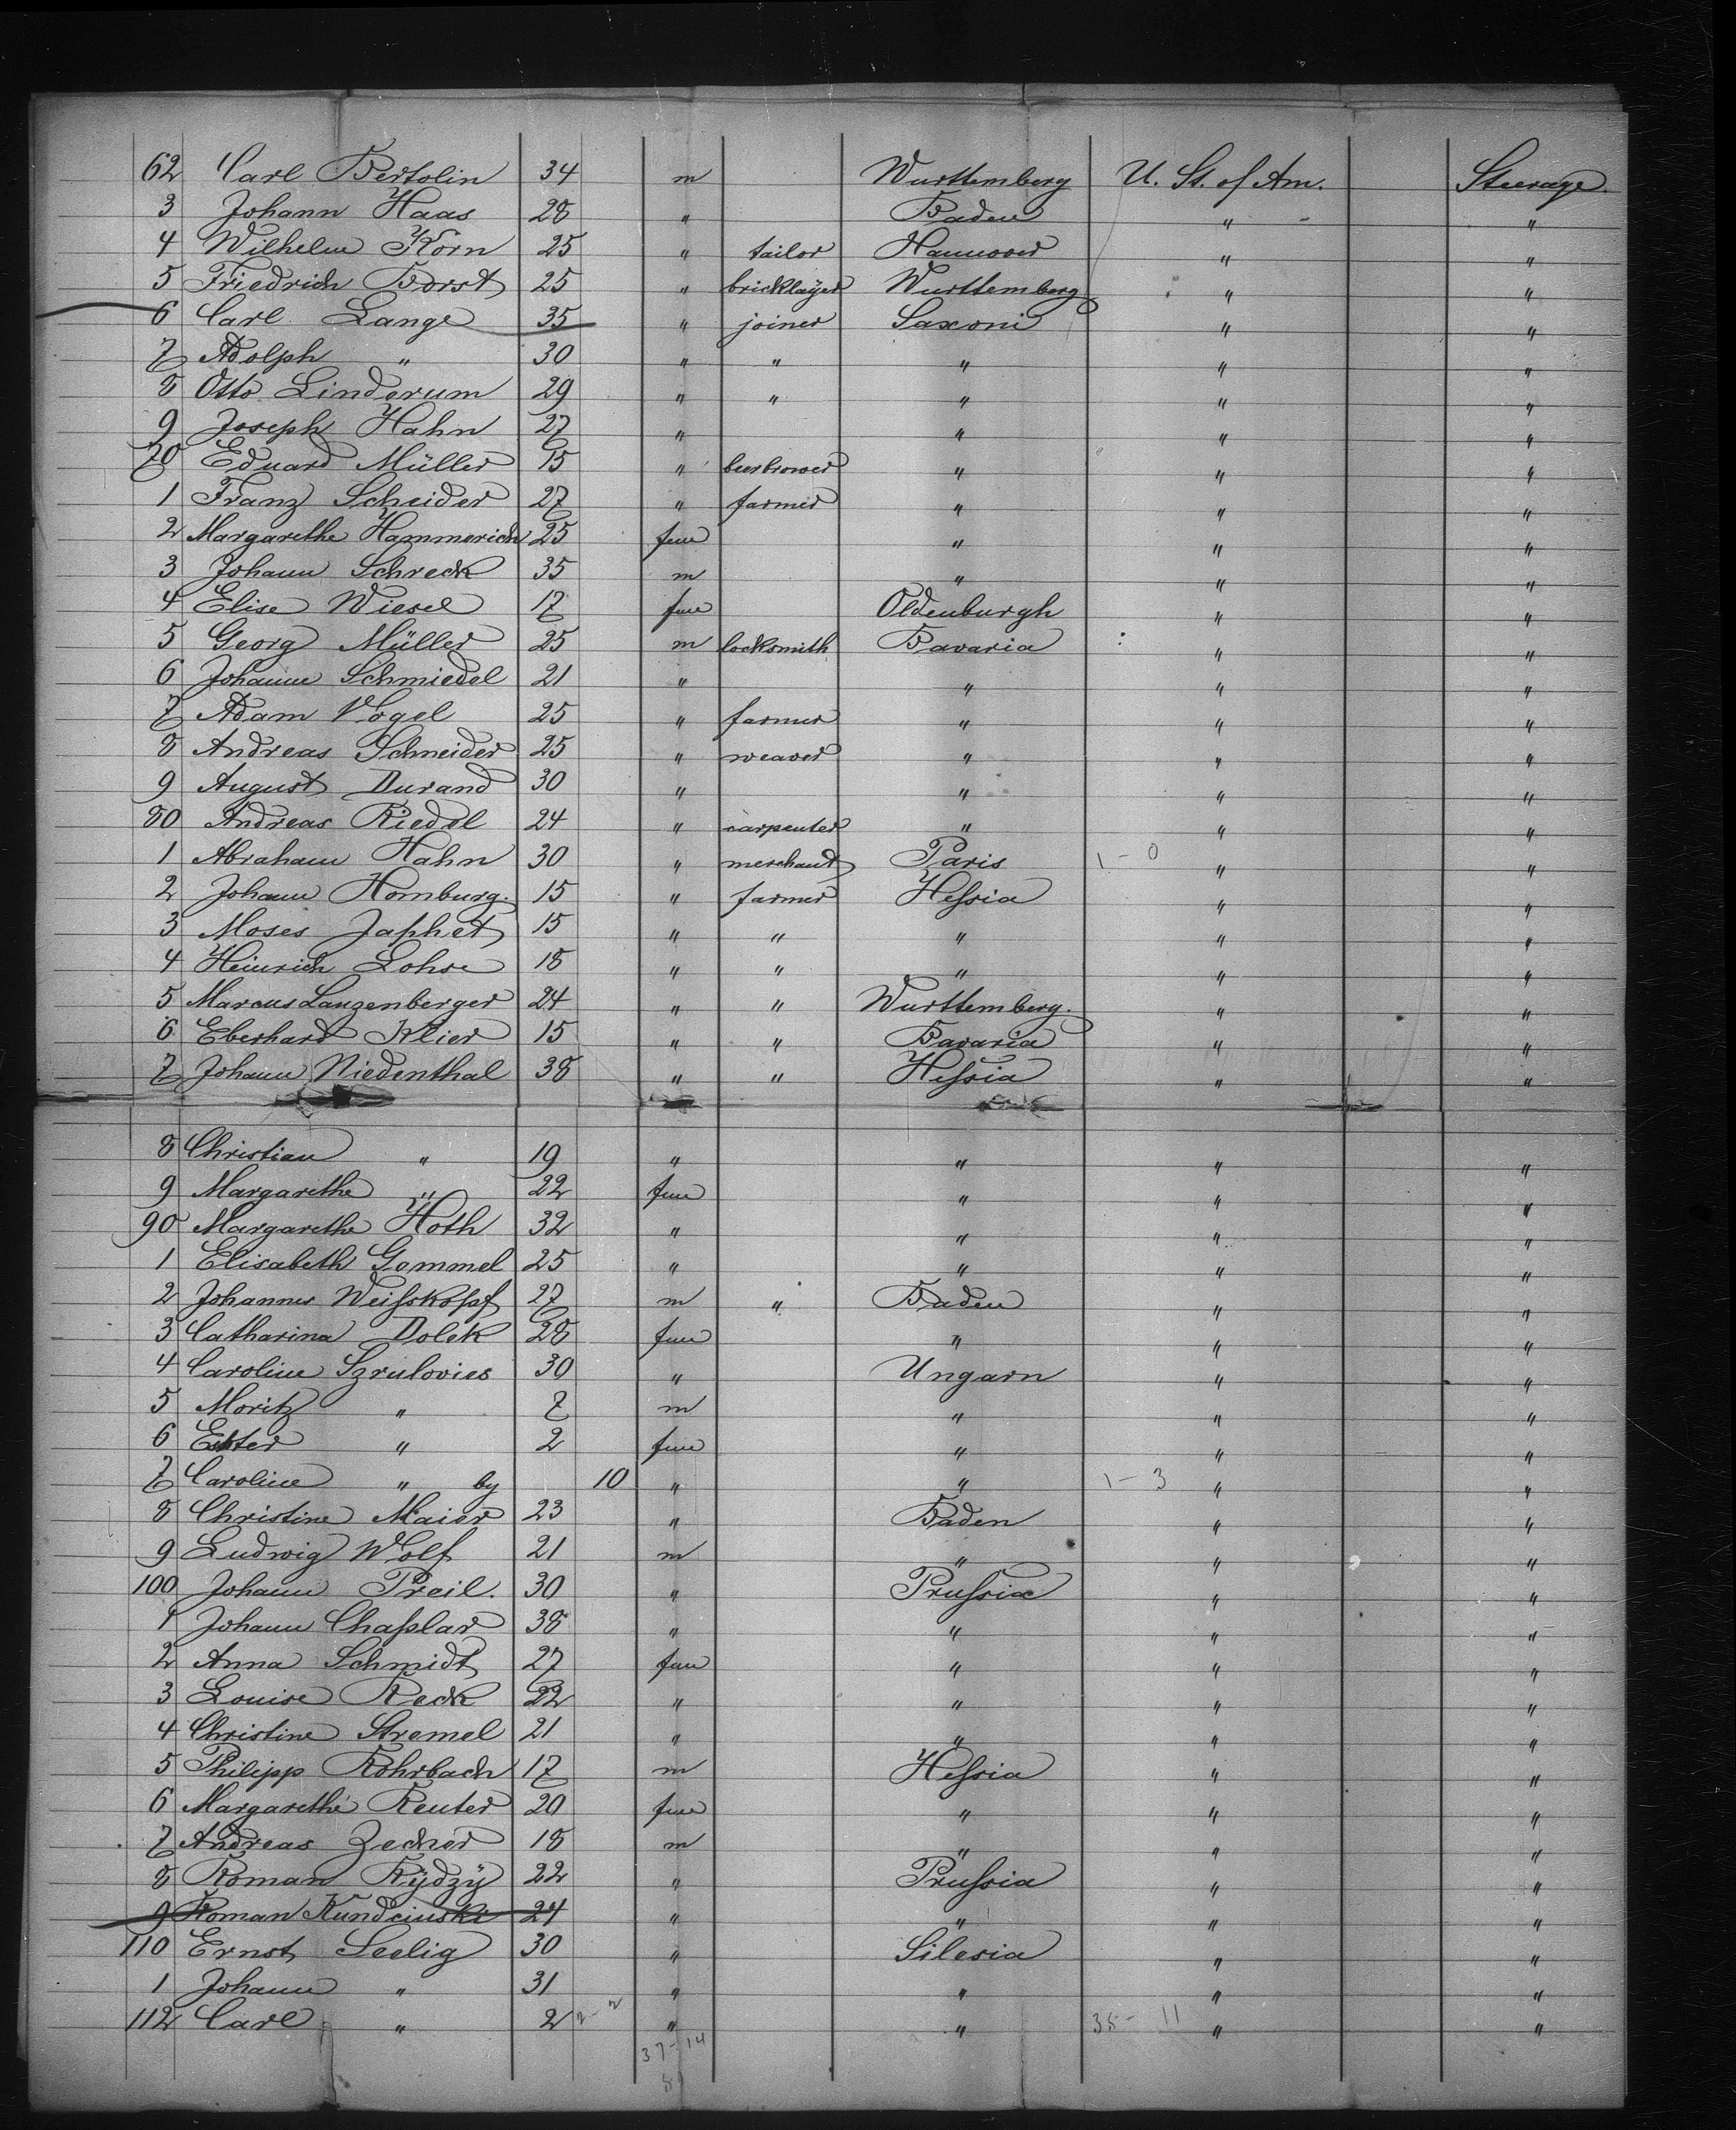 62 Carl Bertolin 34 m Wurttemberg U. St. of Am. Steerage
3 Johann Haas 28 " Baden " "
4 Wilhelm Korn 25 " tailor Hannover " "
5 Friedrich Borst 25 " bricklayer Wurttemberg " "
6 Carl Lange 35 " joiner Saxoni " "
7 Adolph " 30 " " " " "
8 Otto Linderum 29 " " " " "
9 Joseph Hahn 27 " " " "
70 Eduard Müller 15 " beerbrower " " "
1 Franz Scheider 27 " farmer " " "
2 Margarethe Hammerich 25 fem " " "
3 Johann Schreck 35 m " " "
4 Elise Wiesel 17 fem Oldenburgh " "
5 Georg Müller 25 m locksmith Bavaria " "
6 Johann Schmiedel 21 " " " "
7 Adam Vogel 25 " farmer " " "
8 Andreas Schneider 25 " weaver " " "
9 August Durand 30 " " " "
80 Andreas Riedel 24 " carpenter " " "
1 Abraham Hahn 30 " merchant Paris 1 - 0 " "
2 Johann Homburg. 15 " farmer Hessia " "
3 Moses Japhet 15 " " " " "
4 Heinrich Lohse 18 " " " " "
5 Marcus Lanzenberger 24 " " Wurttemberg. " "
6 Eberhard Klier 15 " " Bavaria " "
7 Johann Niedenthal 38 " " Hessia " "
8 Christian " 19 " " " "
9 Margarethe " 22 fem " " "
90 Margarethe Hoth 32 " " " "
1 Elisabeth Gommel 25 " " " "
2 Johannes Weisskopf 27 m " Baden " "
3 Catharina Dolek 28 fem " " "
4 Caroline Szrulovies 30 " Ungarn " "
5 Moritz " 7 m " " "
6 Ester " 2 fem " " "
7 Caroline " by 10 " " 1 - 3 " "
8 Christine Maier 23 " Baden " "
9 Ludwig Wolf 21 m " " "
100 Johann Preil. 30 " Prussia " "
1 Johann Chaplar 38 " " " "
2 Anna Schmidt 27 fem " " "
3 Louise Reck 22 " " " "
4 Christine Stremel 21 " " " "
5 Philipp Rohrbach 17 m Hessia " "
6 Margarethe Reuter 20 fem " " "
7 Andreas Zecher 18 m " " "
8 Roman Rÿdzÿ 22 " Prussia " "
9 Roman Rundciuski 24 " " " "
110 Ernst Seelig 30 " Silesia " "
1 Johann " 31 " " " "
112 Carl " 2 2-2 " " 38 - 11 " "
37-14